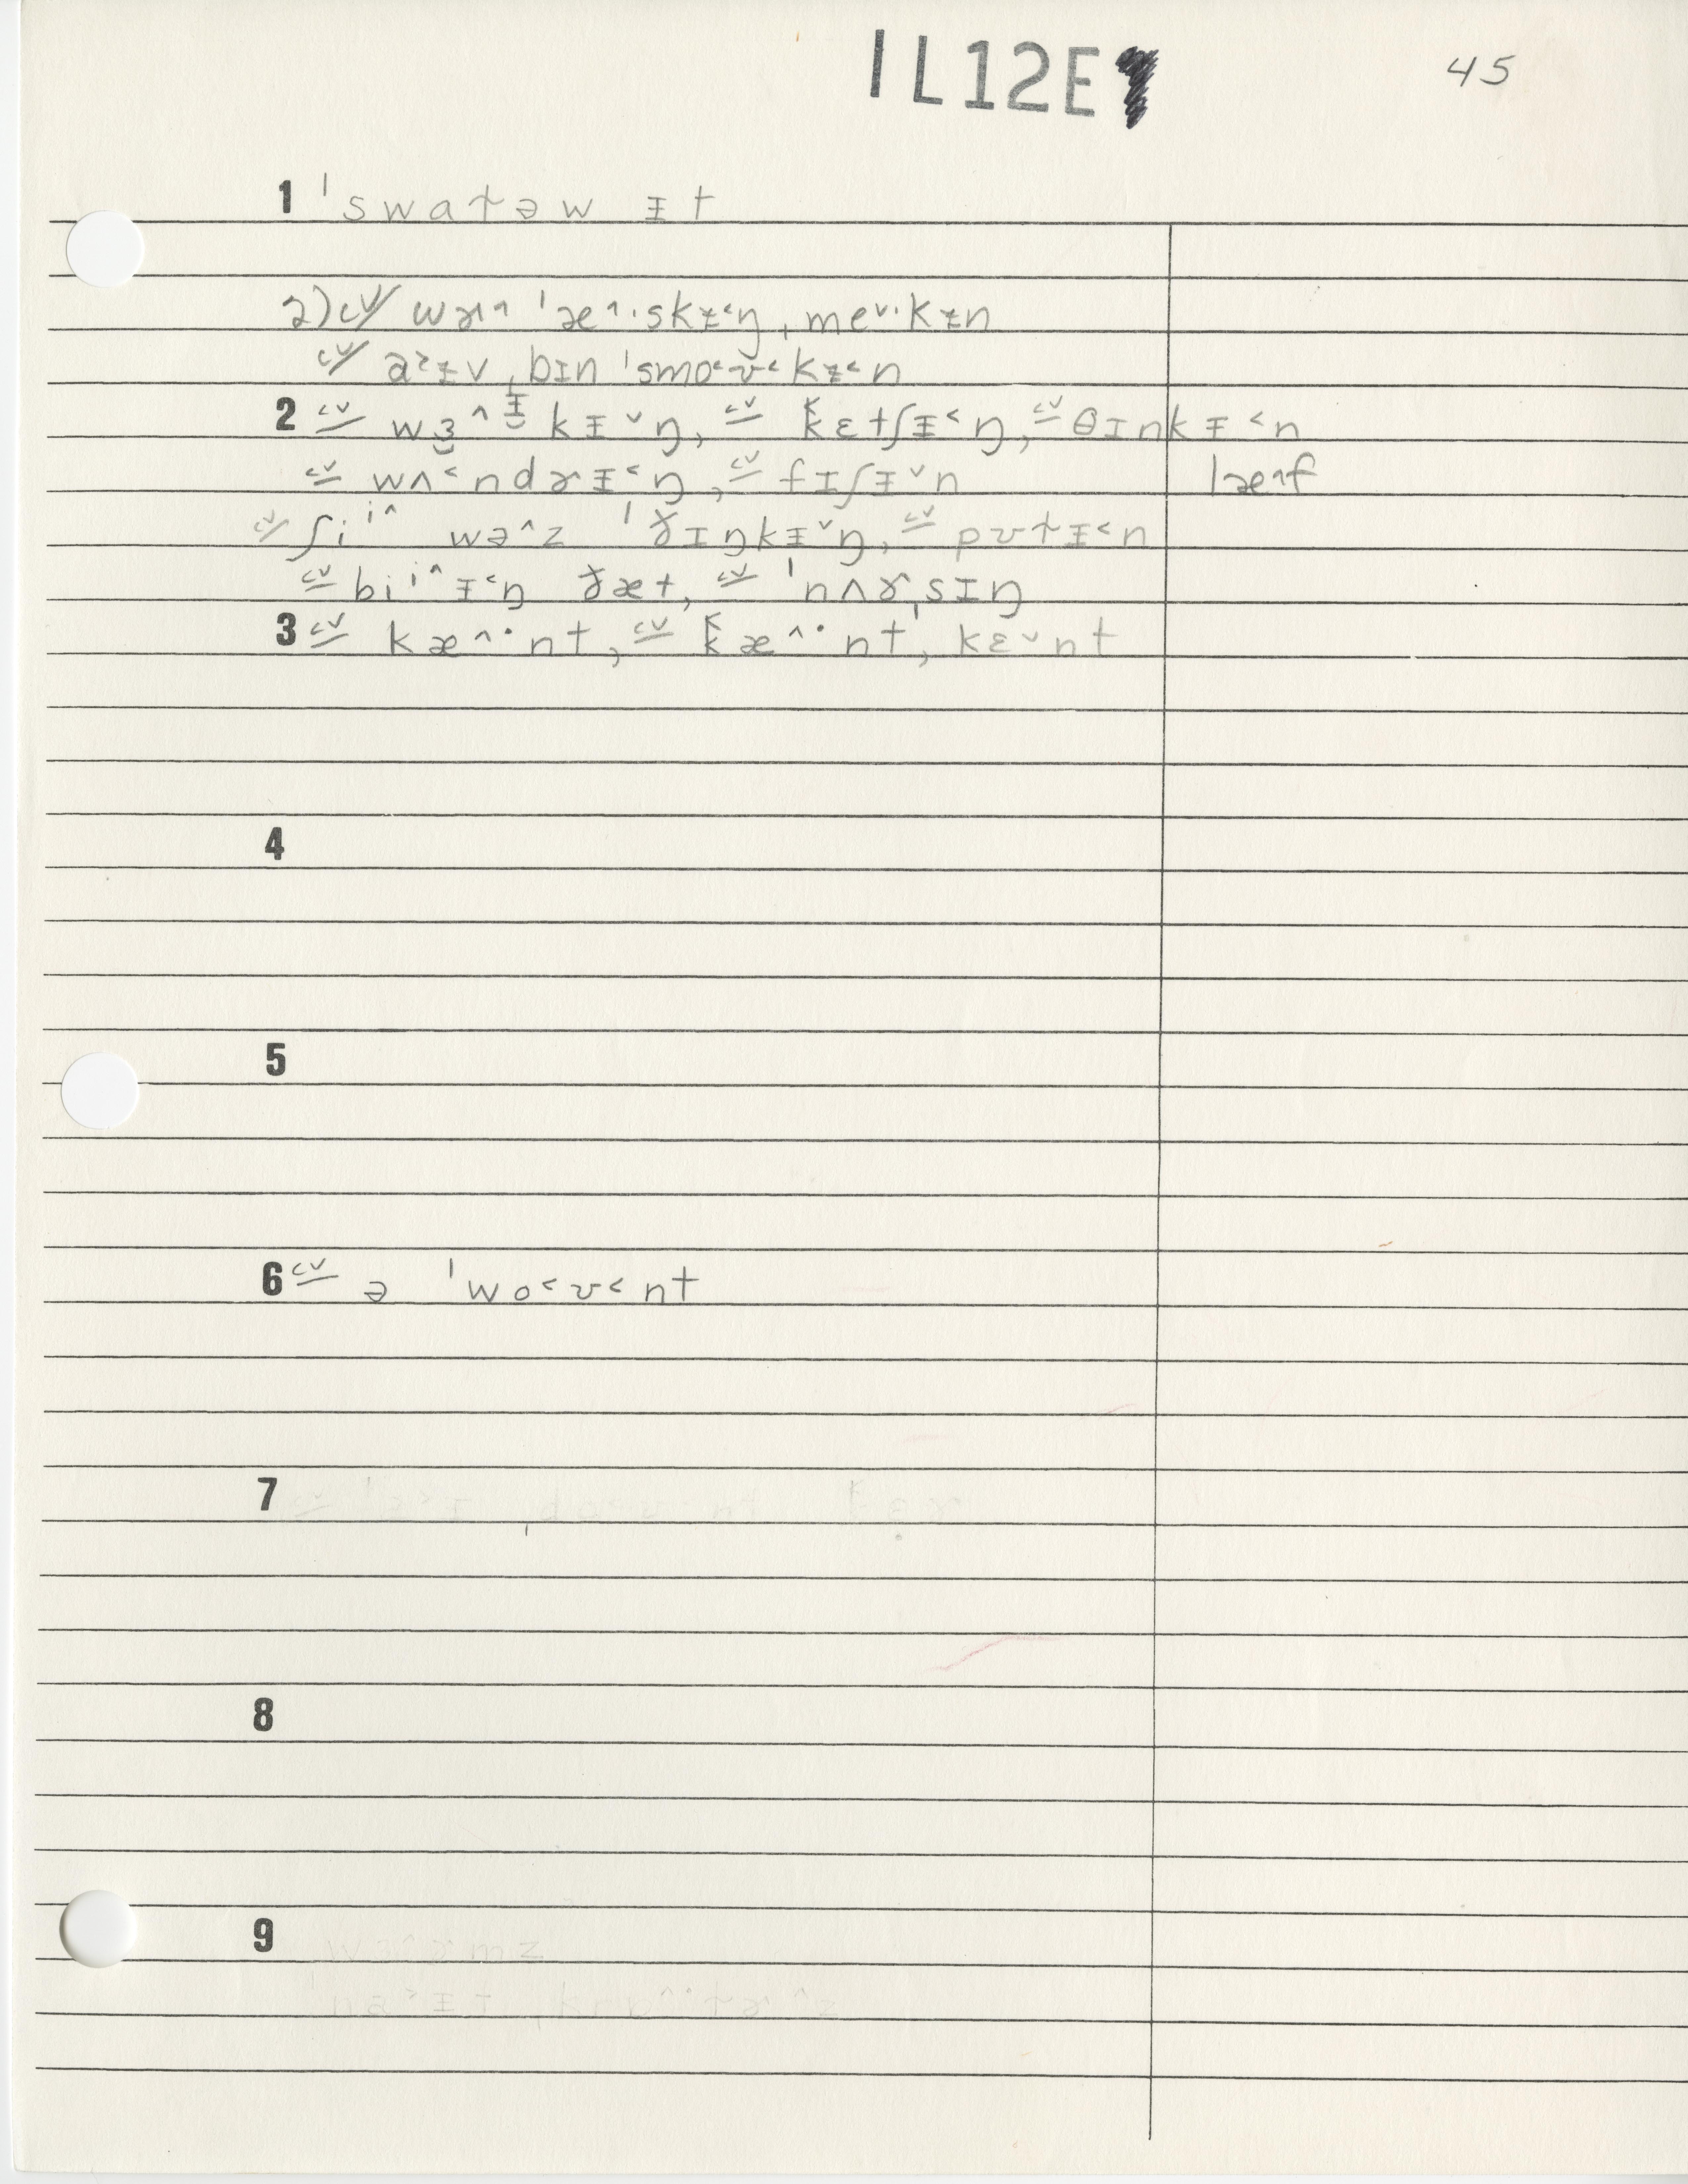 1L12E
45
1 ˈswatəw ɪt
2) cv/ wɤn ˈæ^·skᵻ˂ŋ, me˅·kᵻn
cv/ a˃ᵻv ˌbɪn ˈsmo˂ʊ˂kᵻ˂n
2 cv wɜ^ᵻ kᵻ˅ŋ, cv kɛtʃᵻ˂ŋ, cv θɪnkᵻ˂n
cv wʌ˂ndɤᵻ˂ŋ, cv fɪʃᵻ˅n
læ^f
cv ʃi i^ wə^z ˈɤɪŋkᵻ˅ŋ, cv pʊtᵻ˂n
cv bi i^ ᵻ˂ŋ ðæt, cv ˈnʌɤˌsɪŋ
3 cv kæ^·nt, cv kæ^·nt, kɛ˅nt
4
5
6 cv ə ˈwo˂ʊ˂nt
7
8
9